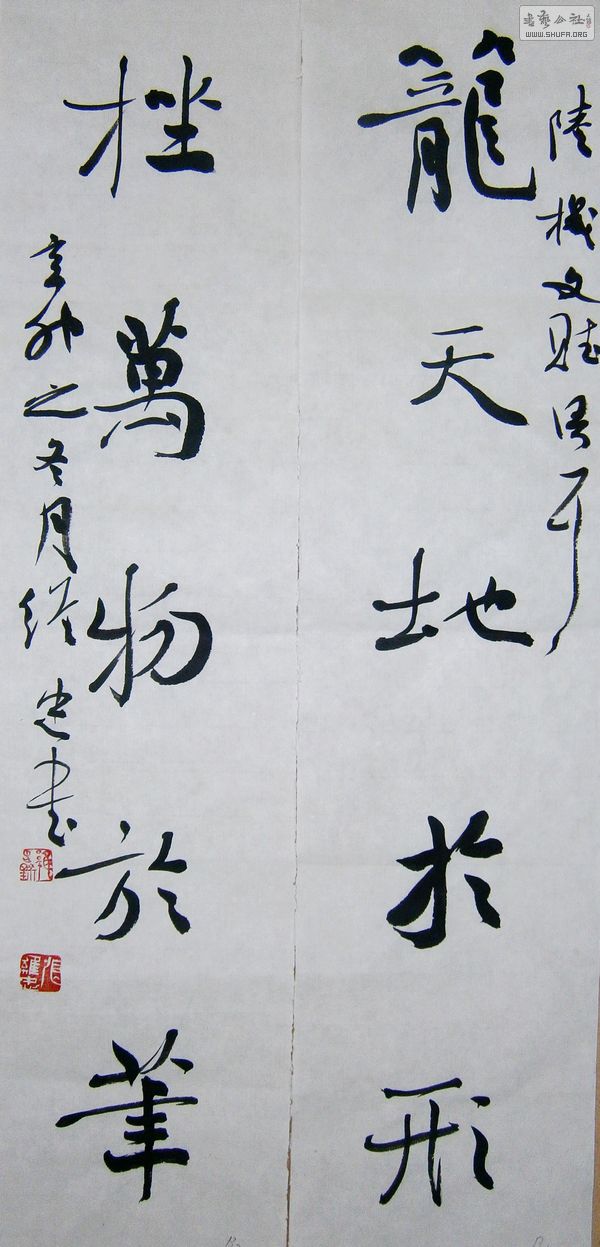 書藝公社
WWW.SHUFA.ORG
陸機文賦
籠天地於形
挫萬物於筆
辛卯之冬月維忠書